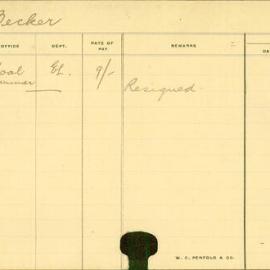 Becker
OFFICE DEPT. RATE OF PAY REMARKS DA
EL. 9/- Resigned
W. C. PENFOLD & CO.